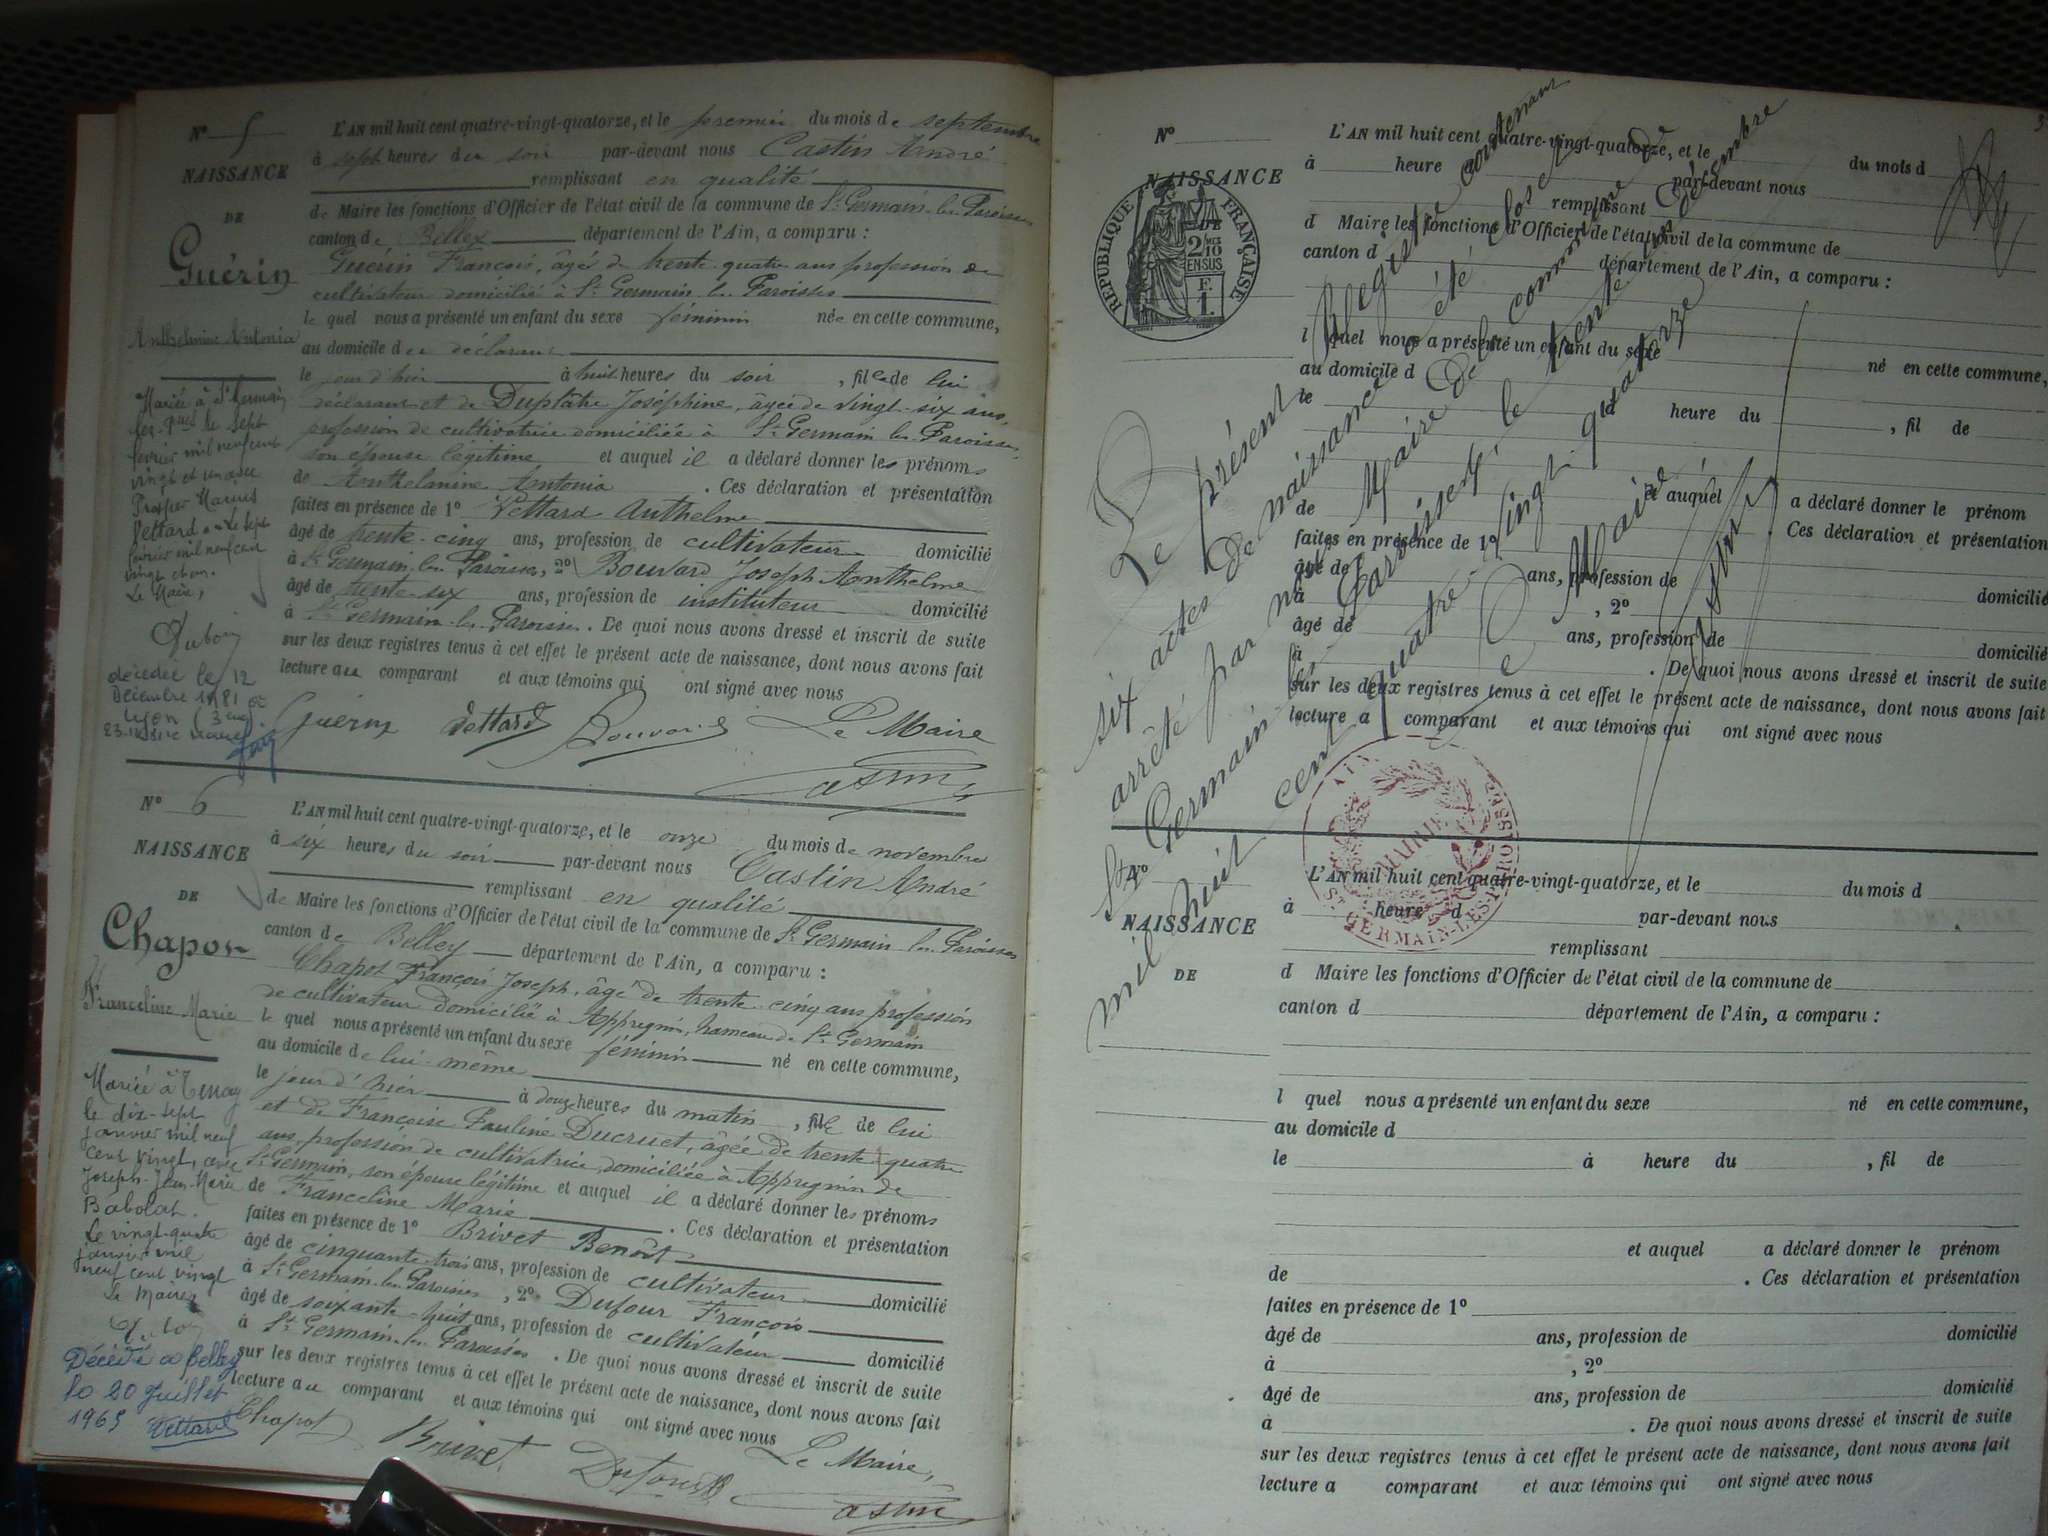 N° 5
NAISSANCE
DE
Guérin
Anthelmine Antonia
Mariée à St Germain
les-psses le sept
février mil neuf cent
vingt et un avec
Prosper Marius
Vettard. Le sept
février mil neuf cent
vingt et un.
Le Maire,
Dubois
décédée le 12
Décembre 1981 à
Lyon (3 eme).
L'AN mil huit cent quatre-vingt-quatorze, et le premier du mois de septembre
à sept heures du soir par-devant nous Castin André
remplissant en qualité
de Maire les fonctions d'Officier de l'état civil de la commune de St Germain-les-Paroisses
canton de Belley département de l'Ain, a comparu :
Guérin François, âgé de trente-quatre ans profession de
cultivateur domicilié à St Germain-les-Paroisses
le quel nous a présenté un enfant du sexe féminin née en cette commune,
au domicile du déclarant
le jour d'hier à huit heures du soir, fille de lui
déclarant et de Duplâtre Joséphine, âgée de vingt-six ans,
profession de cultivatrice domiciliée à St Germain-les-Paroisses,
son épouse légitime et auquel il a déclaré donner les prénoms
de Anthelmine Antonia. Ces déclaration et présentation
faites en présence de 1° Vettard Anthelme
âgé de trente-cinq ans, profession de cultivateur domicilié
à St Germain-les-Paroisses, 2° Bouvard Joseph Anthelme
âgé de trente-six ans, profession de instituteur domicilié
à St Germain-les-Paroisses. De quoi nous avons dressé et inscrit de suite
sur les deux registres tenus à cet effet le présent acte de naissance, dont nous avons fait
lecture au comparant et aux témoins qui ont signé avec nous
Guérin Vettard Bouvard Le Maire
Castin
N° 6
NAISSANCE
DE
Chapot
Franceline Marie
Mariée à Tenay
le dix-sept
janvier mil neuf
cent vingt, avec
Joseph-Jean-Marie
Babolat.
Le vingt-quatre
janvier mil
neuf cent vingt
Le Maire,
Dubois
Décédée à Belley
le 20 Juillet
1965 Vettard
L'AN mil huit cent quatre-vingt-quatorze, et le onze du mois de novembre
à six heures du soir par-devant nous Castin André
remplissant en qualité
de Maire les fonctions d'Officier de l'état civil de la commune de St Germain-les-Paroisses
canton de Belley département de l'Ain, a comparu :
Chapot François Joseph, âgé de trente-cinq ans profession
de cultivateur domicilié à Appregnin, hameau de St Germain
le quel nous a présenté un enfant du sexe féminin né en cette commune,
au domicile de lui-même
le jour d'hier à douze heures du matin, fille de lui
et de Françoise Pauline Ducruet, âgée de trente-quatre
ans, profession de cultivatrice, domiciliée à Appregnin de
St Germain, son épouse légitime et auquel il a déclaré donner les prénoms
de Franceline Marie. Ces déclaration et présentation
faites en présence de 1° Brivet Benoît
âgé de cinquante-trois ans, profession de cultivateur domicilié
à St Germain-les-Paroisses, 2° Dufour François
âgé de soixante-huit ans, profession de cultivateur domicilié
à St Germain-les-Paroisses. De quoi nous avons dressé et inscrit de suite
sur les deux registres tenus à cet effet le présent acte de naissance, dont nous avons fait
lecture au comparant et aux témoins qui ont signé avec nous
Chapot Brivet Dufour Le Maire,
Castin
N°
NAISSANCE
RÉPUBLIQUE FRANÇAISE
2/10 EN SUS
F. 1.
L'AN mil huit cent quatre-vingt-quatorze, et le du mois d
à heure par-devant nous
remplissant
d Maire les fonctions d'Officier de l'état civil de la commune de
canton d département de l'Ain, a comparu :
l quel nous a présenté un enfant du sexe né en cette commune,
au domicile d
le à heure du , fil de
et auquel a déclaré donner le prénom
de . Ces déclaration et présentation
faites en présence de 1°
âgé de ans, profession de domicilié
à , 2°
âgé de ans, profession de domicilié
à . De quoi nous avons dressé et inscrit de suite
sur les deux registres tenus à cet effet le présent acte de naissance, dont nous avons fait
lecture a comparant et aux témoins qui ont signé avec nous
Le présent Registre contenant
six actes de naissance a été clos et
arrêté par nous Maire de la commune de
St Germain-les-Paroisses, le trente un décembre
mil huit cent quatre-vingt-quatorze
Le Maire
Castin
MAIRIE
ST GERMAIN-LES-PAROISSES
AIN
N°
NAISSANCE
DE
L'AN mil huit cent quatre-vingt-quatorze, et le du mois d
à heure d par-devant nous
remplissant
d Maire les fonctions d'Officier de l'état civil de la commune de
canton d département de l'Ain, a comparu :
l quel nous a présenté un enfant du sexe né en cette commune,
au domicile d
le à heure du , fil de
et auquel a déclaré donner le prénom
de . Ces déclaration et présentation
faites en présence de 1°
âgé de ans, profession de domicilié
à , 2°
âgé de ans, profession de domicilié
à . De quoi nous avons dressé et inscrit de suite
sur les deux registres tenus à cet effet le présent acte de naissance, dont nous avons fait
lecture a comparant et aux témoins qui ont signé avec nous